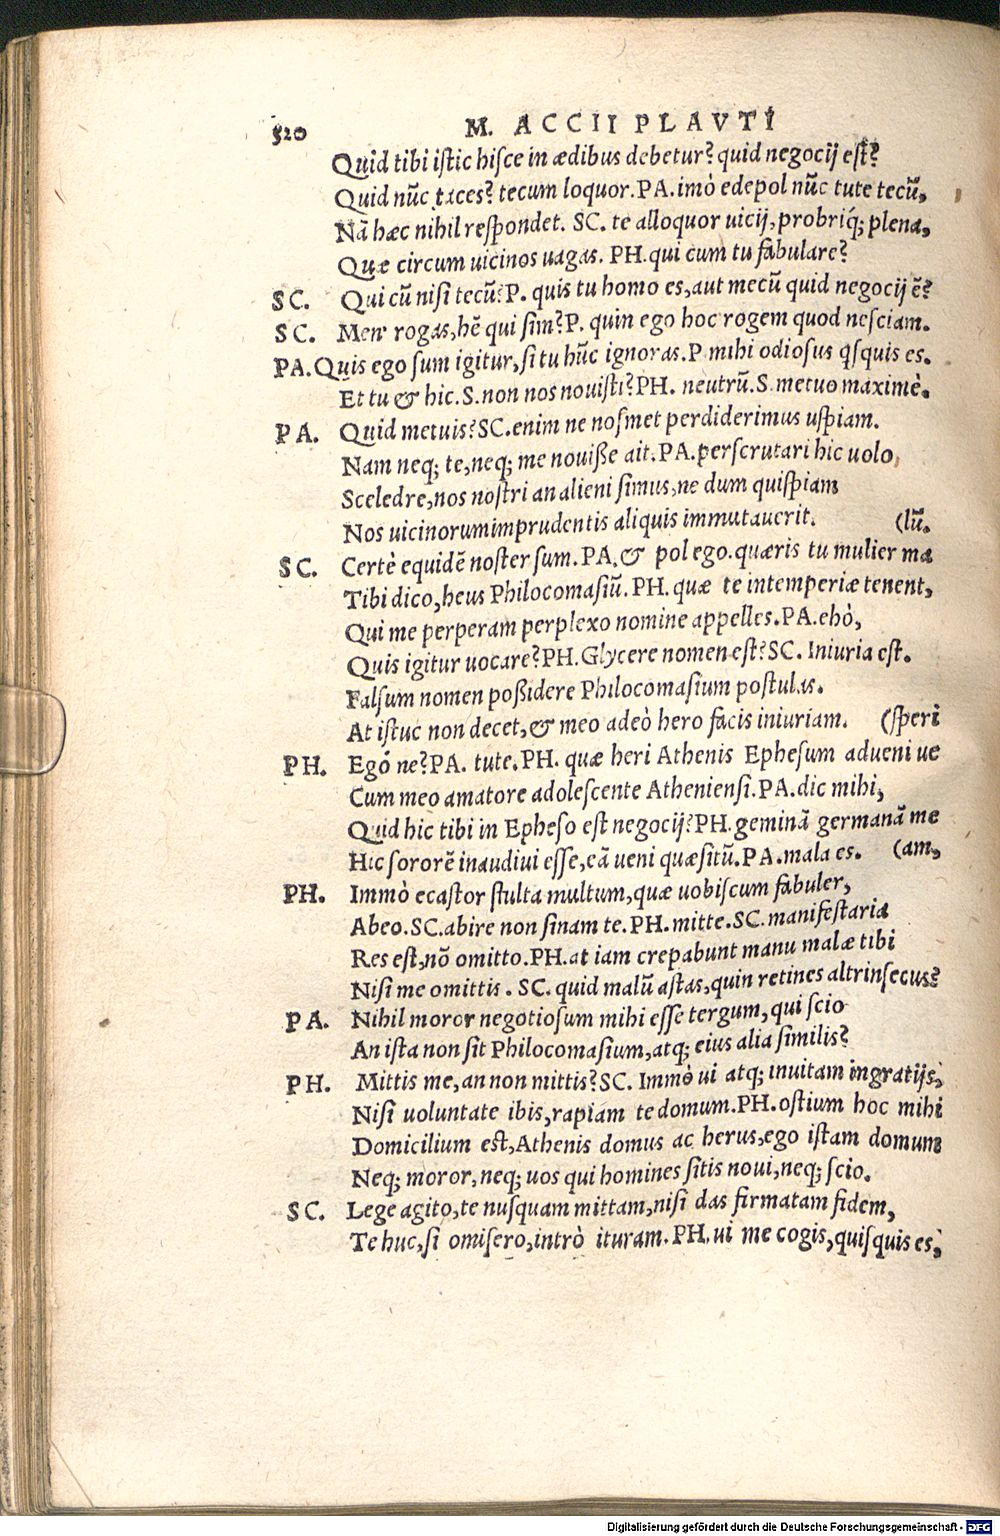 520 M. ACCII PLAVTI
Quid tibi istic hisce in ædibus debetur? quid negocij est?
Quid nũc taces? tecum loquor. PA. imò edepol nũc tute tecũ,
Nã hæc nihil respondet. SC. te alloquor uicij, probriq́; plena,
Quæ circum uicinos uagas. PH. qui cum tu fabulare?
SC. Qui cũ nisi tecũ? P. quis tu homo es, aut mecũ quid negocij ẽ?
SC. Men' rogas, hẽ qui sim? P. quin ego hoc rogem quod nesciam.
PA. Quis ego sum igitur, si tu hũc ignoras. P mihi odiosus q̃squis es.
Et tu & hic. S. non nos nouisti? PH. neutrũ. S. metuo maximè.
PA. Quid metuis? SC. enim ne nosmet perdiderimus uspiam.
Nam neq; te, neq; me nouisse ait. PA. perscrutari hic uolo,
Sceledre, nos nostri an alieni simus, ne dum quispiam
Nos uicinorum imprudentis aliquis immutauerit. (lũ.
SC. Certè equidẽ noster sum. PA. & pol ego. quæris tu mulier ma
Tibi dico, heus Philocomasiũ. PH. quæ te intemperiæ tenent,
Qui me perperam perplexo nomine appelles. PA. ehò,
Quis igitur uocare? PH. Glycere nomen est? SC. Iniuria est.
Falsum nomen possidere Philocomasium postulas.
At istuc non decet, & meo adeò hero facis iniuriam. (speri
PH. Egó ne? PA. tute. PH. quæ heri Athenis Ephesum adueni ue
Cum meo amatore adolescente Atheniensi. PA. dic mihi,
Quid hic tibi in Epheso est negocij? PH. geminã germanã me
Hic sororẽ inaudiui esse, eã ueni quæsitũ. PA. mala es. (am,
PH. Immò ecastor stulta multum, quæ uobiscum fabuler,
Abeo. SC. abire non sinam te. PH. mitte. SC. manifestaria
Res est, nõ omitto. PH. at iam crepabunt manu malæ tibi
Nisi me omittis. SC. quid malũ astas, quin retines altrinsecus?
PA. Nihil moror negotiosum mihi esse tergum, qui scio
An ista non sit Philocomasium, atq; eius alia similis?
PH. Mittis me, an non mittis? SC. Immò ui atq; inuitam ingratijs,
Nisi uoluntate ibis, rapiam te domum. PH. ostium hoc mihi
Domicilium est, Athenis domus ac herus, ego istam domum
Neq; moror, neq; uos qui homines sitis noui, neq; scio.
SC. Lege agito, te nusquam mittam, nisi das firmatam fidem,
Te huc, si omisero, intrò ituram. PH. ui me cogis, quisquis es,
Digitalisierung gefördert durch die Deutsche Forschungsgemeinschaft - DFG